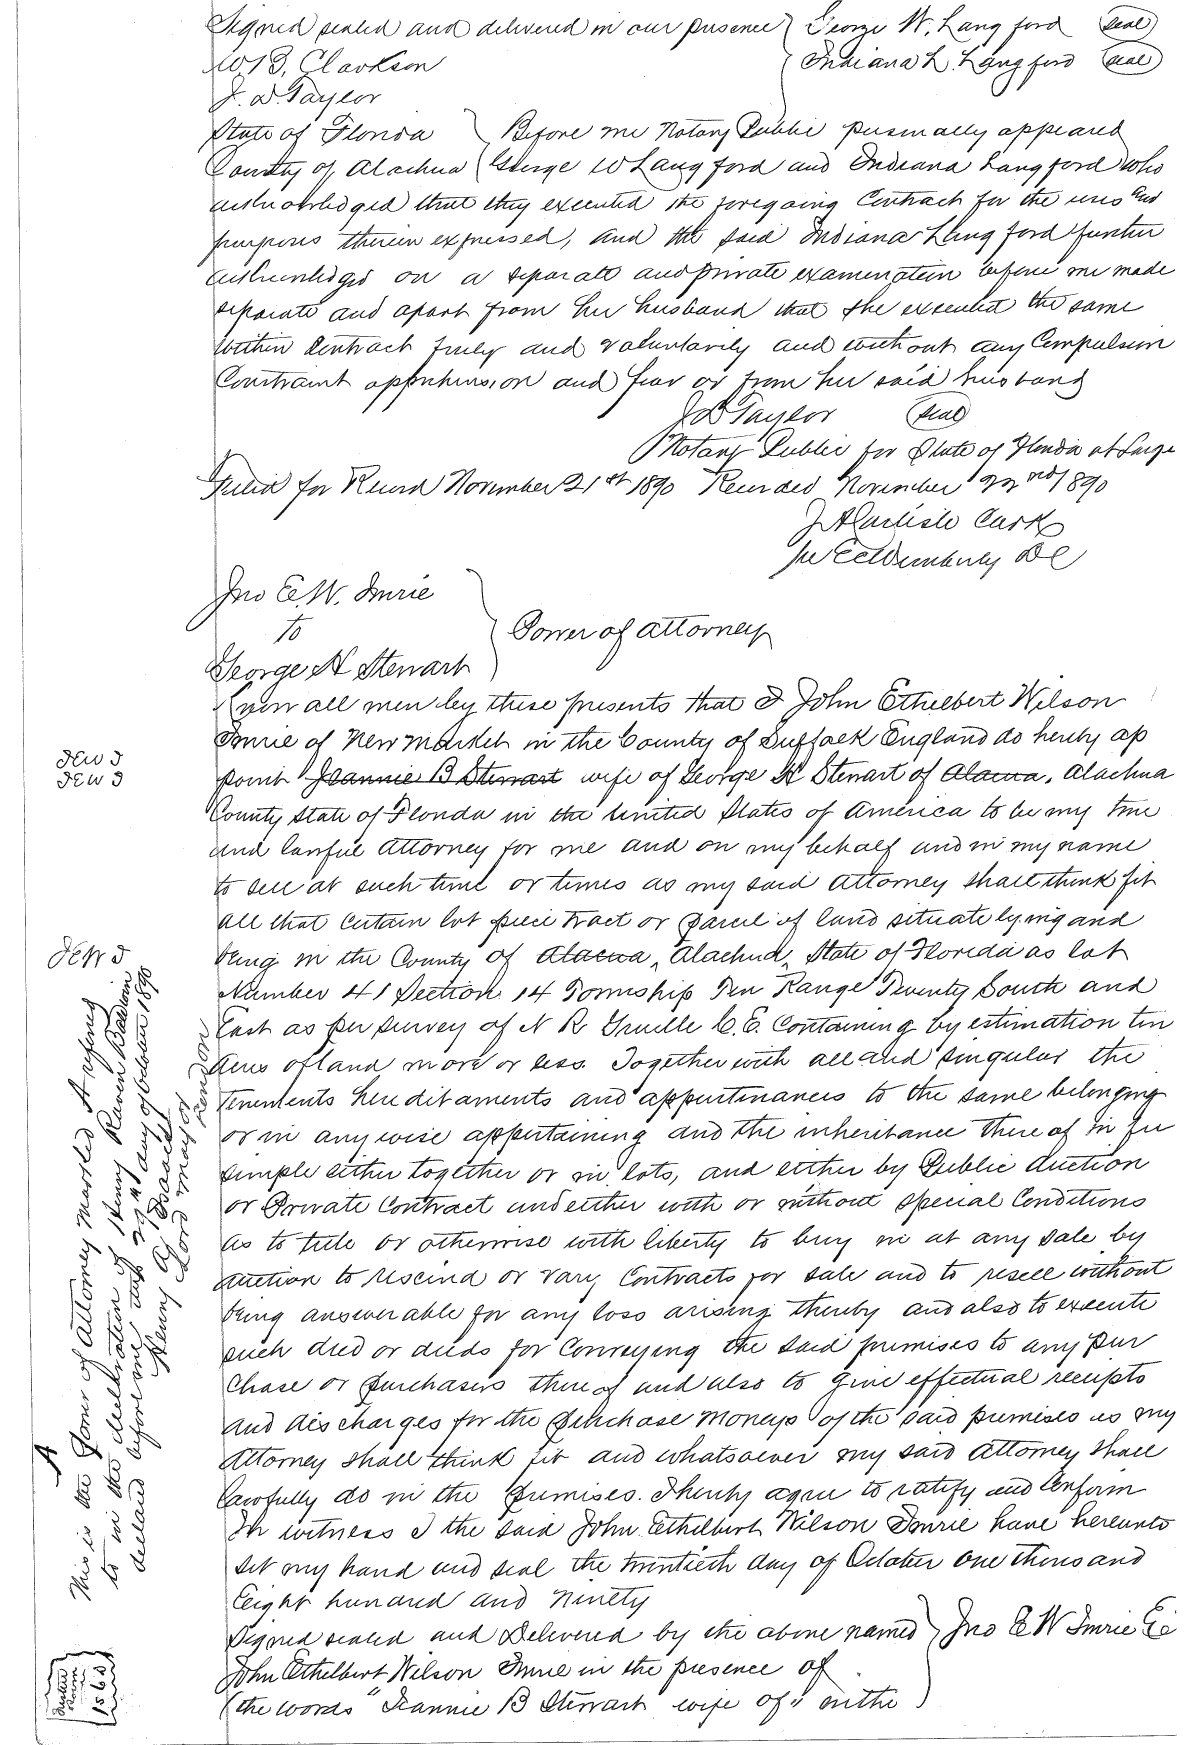 Signed sealed and delivered in our presence George W. Langford (seal)
W.B. Clarkson Indiana L. Langford (seal)
J. D. Taylor
State of Florida Before me Notary Public personally appeared
County of Alachua George W Langford and Indiana Langford who
acknowledged that they executed the foregoing Contract for the uses and
purposes therein expressed, and the said Indiana Langford further
acknowledged on a separate and private examination before me made
separate and apart from her husband that she executed the same
within Contract freely and voluntarily and without any Compulsion
Constraint apprehension and fear or from her said husband
J D Taylor (seal)
Notary Public for State of Florida at Large
Filed for Record November 21st 1890 Recorded November 22nd 1890
J A Carlisle Clerk
per DC
Jno E. W. Imrie
to Power of attorney
George H Stewart
Know all men by these presents that I John Ethelbert Wilson
Imrie of New market in the County of Suffolk England do hereby ap
JEW I
point Jeannie B Stewart wife of George H Stewart of Alacua, Alachua
JEW I
County State of Florida in the United States of America to be my true
and lawful Attorney for me and on my behalf and in my name
to sell at such time or times as my said Attorney shall think fit
all that certain lot piece tract or parcel of land situate lying and
JEW I
being in the County of Alacua, Alachua, State of Florida as lot
Number 41 Section 14 Township Ten Range Twenty South and
East as per survey of N R Gruelle C. E. Containing by estimation ten
acres of land more or less. Together with all and singular the
tenements hereditaments and appurtinances to the same belonging
or in any wise appertaining and the inheritance there of in fee
simple either together or in lots, and either by Public Auction
or Private Contract and either with or without special Conditions
as to title or otherwise with liberty to buy in at any sale by
auction to rescind or vary Contracts for sale and to resell without
being answerable for any loss arising thereby and also to execute
such deed or deeds for Conveying the said premises to any pur
chase or purchasers there of and also to give effectual receipts
and discharges for the purchase moneys of the said premises as my
Attorney shall think fit and whatsoever my said Attorney shall
lawfully do in the premises. I hereby agree to ratify and Confirm
In witness I the said John Ethelbert Wilson Imrie have hereunto
set my hand and seal the twentieth day of October one thousand
Eight hundred and Ninety
Signed sealed and Delivered by the above named Jno E W Imrie
John Ethelbert Wilson Imrie in the presence of
(the words "Jeannie B Stewart wife of" in the
A
This is the Power of Attorney Marked A refering
to in the declaration of Henry Raven Baldwin
declared before me this 29th day of October 1890
Henry A Isaacs
Lord Mayor London